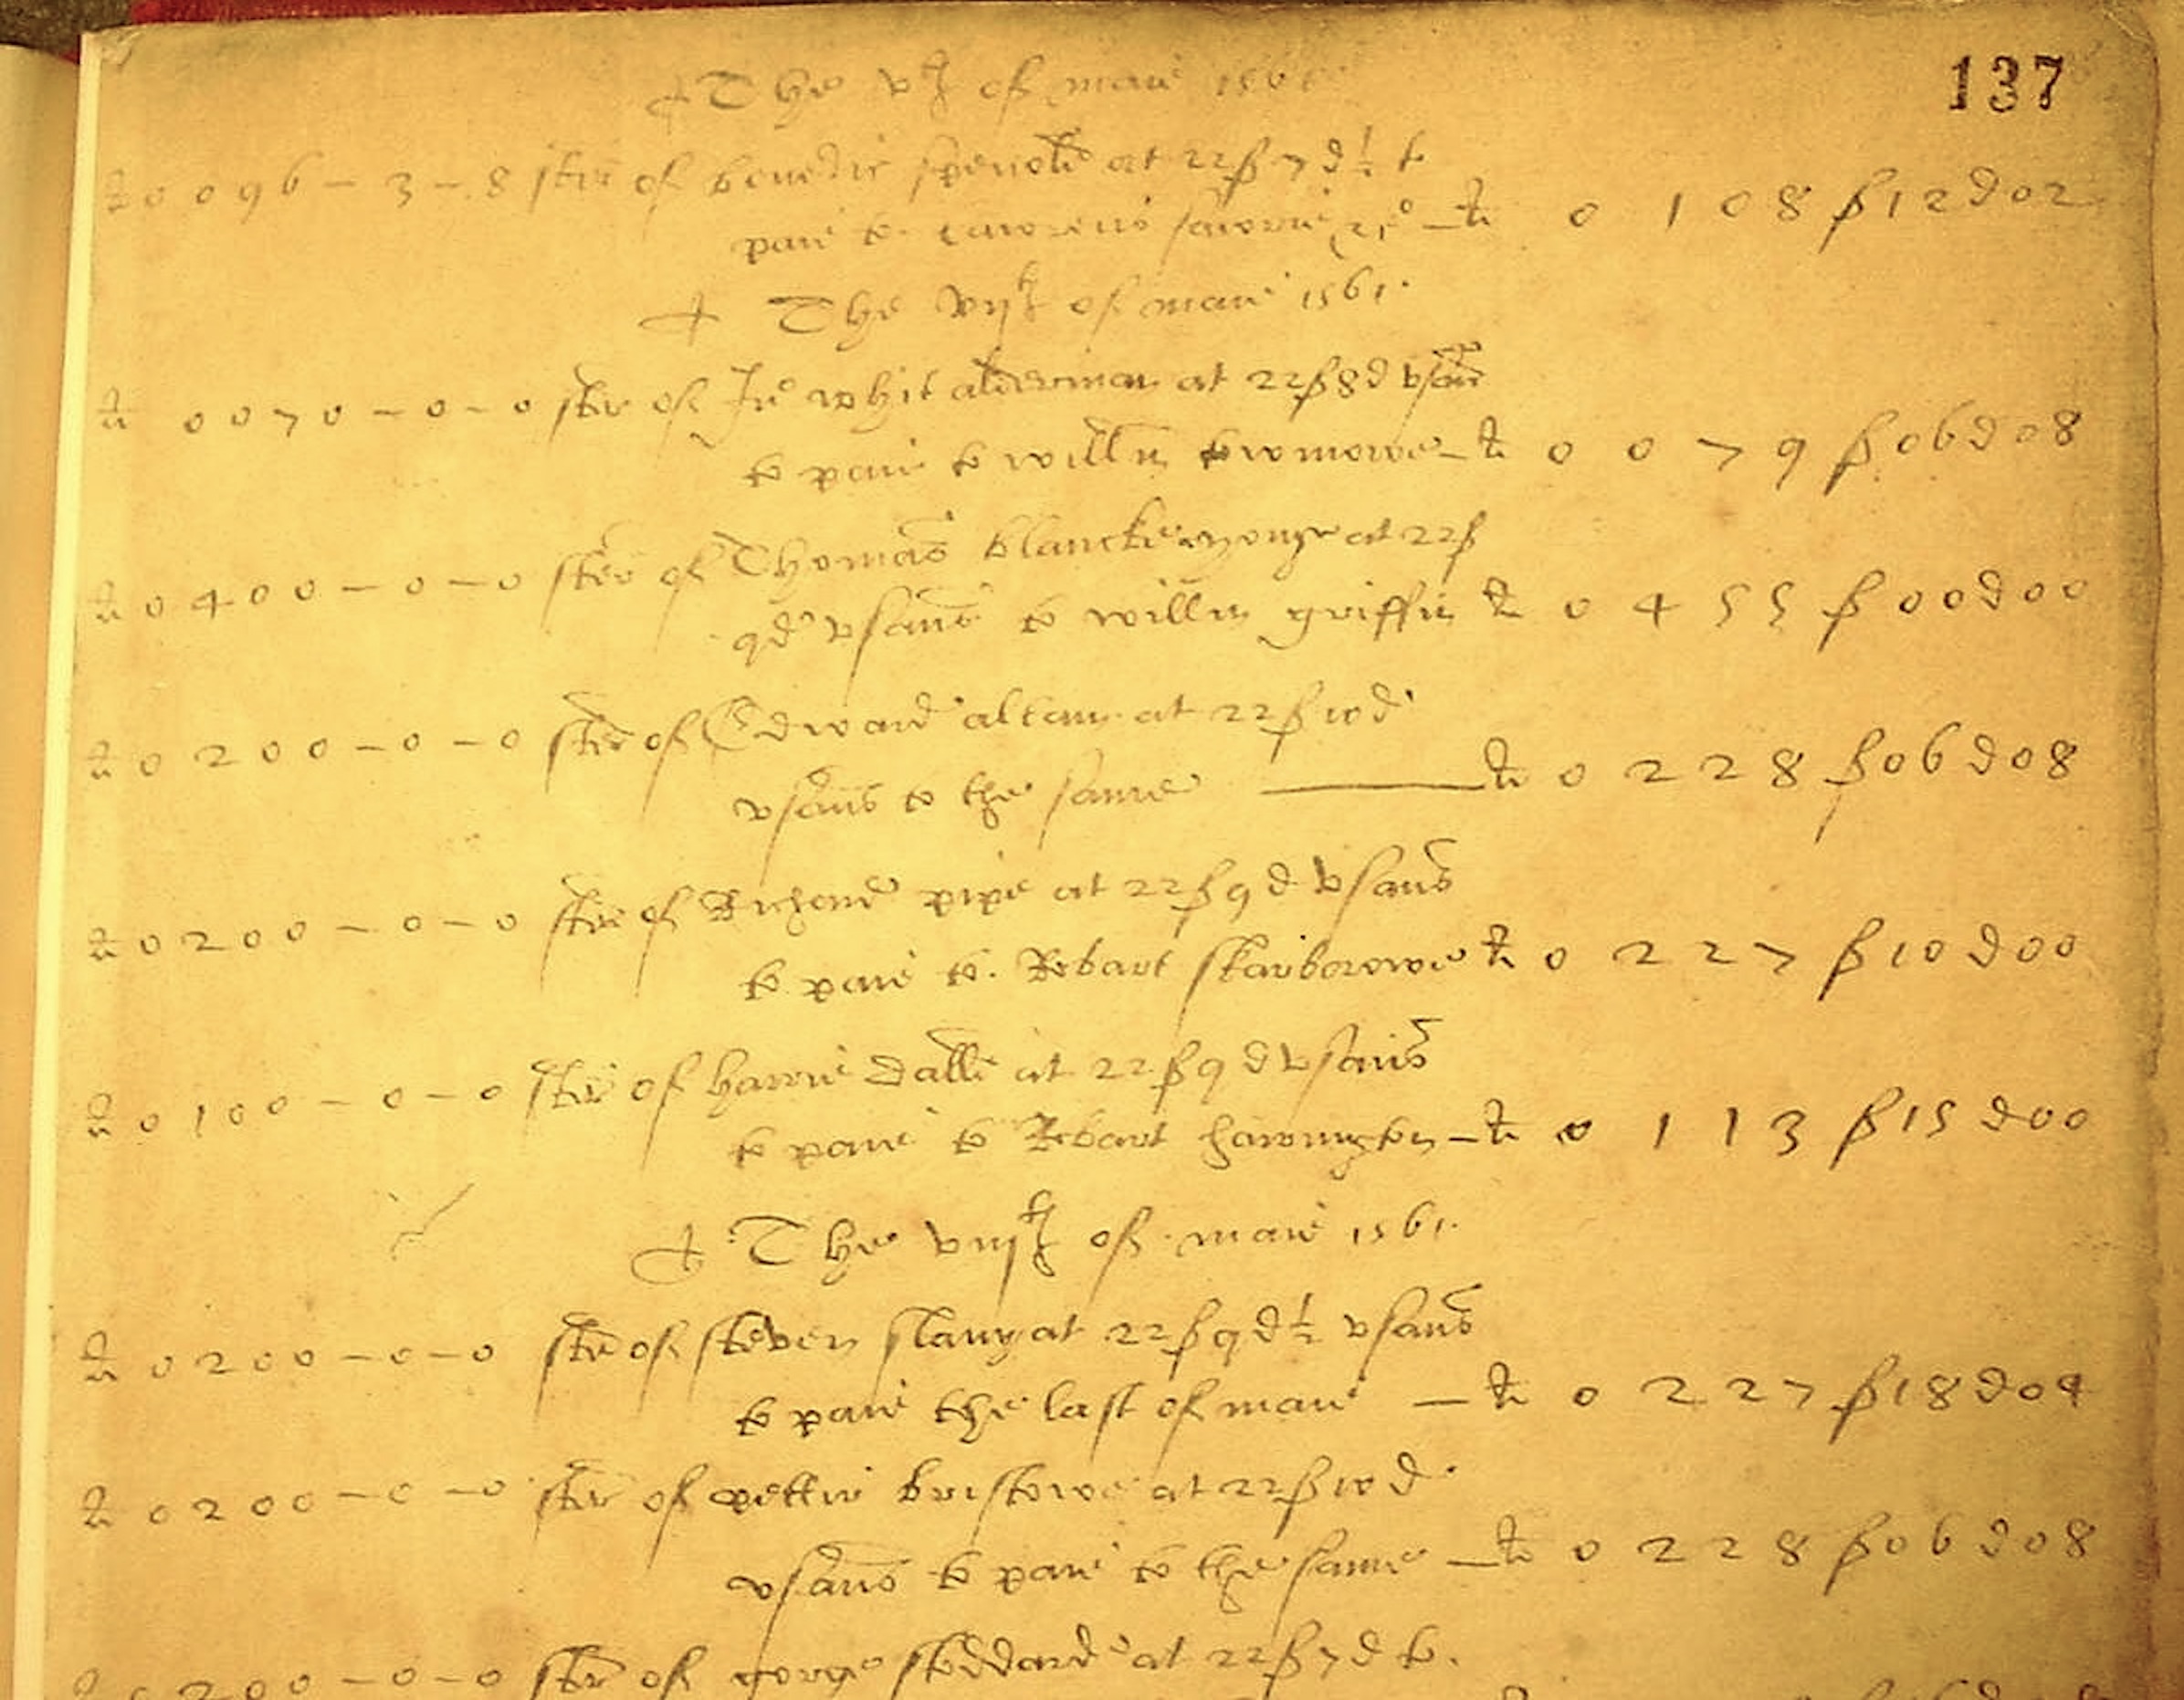 137
The vj of maie 1561
li 0096 – 3 – 8 ster of benedic spenolle at 22ß 7d ½ to
paie to lawrens
li 0108 ß12 d02
The vijth of maie 1561.
li 0070 – 0 – 0 ster of Jno whit alderman at 22ß 8d vsans
to paie to willm towmowe – li 0079 ß06 d08
li 0400 – 0 – 0 ster of Thomas blancke yonge at 22ß
9d vsans to willm griffin li 0455 ß00 d00
li 0200 – 0 – 0 ster of Edward altam at 22ß 10d
vsans to the same — li 0228 ß06 d08
li 0200 – 0 – 0 ster of Richard pipe at 22ß 9d vsans
to paie to Robart skarborowe li 0227 ß10 d00
li 0100 – 0 – 0 ster of harrie dalle at 22ß 9d vsans
to paie to Robart harrington – li 0113 ß15 d00
The viijth of maie 1561.
li 0200 – 0 – 0 ster of steven slany at 22ß 9d ½ vsans
to paie the last of maie – li 0227 ß18 d04
li 0200 – 0 – 0 ster of petter bristowe at 22ß 10d
vsans to paie to the same – li 0228 ß06 d08
200 – 0 – 0 ster of gorge stoddard at 22ß 7d to